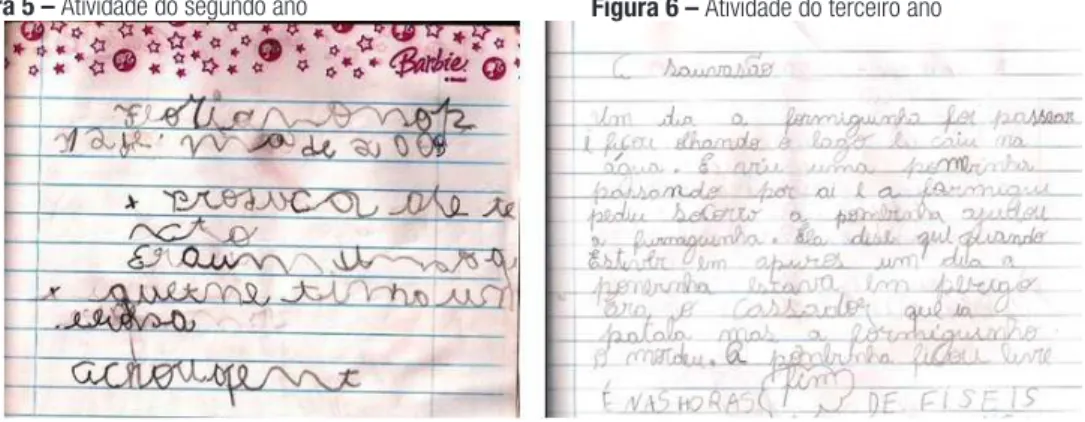 ra 5 – Atividade do segundo ano
Barbie
Florianonop
12 de made 2008
x produca ale te
xto
Eraum
x querne tinho um
erosa
achougent
Figura 6 – Atividade do terceiro ano
A sauvasão
Um dia a formiguinha foi passear
e ficou olhando o lago e caiu na
água. E ariu uma pombinha
passando por ai e a formigui
pediu socorro a pombinha ajudou
a furmaguinha. Ela dise que quando
Estiver em apuros um dia a
ponbinha estava em perigo
Era o cassador que ia
patala mas a formiguinho
o mordeu. A pombinha ficou livre
fim
E NAS HORAS DE FISEIS